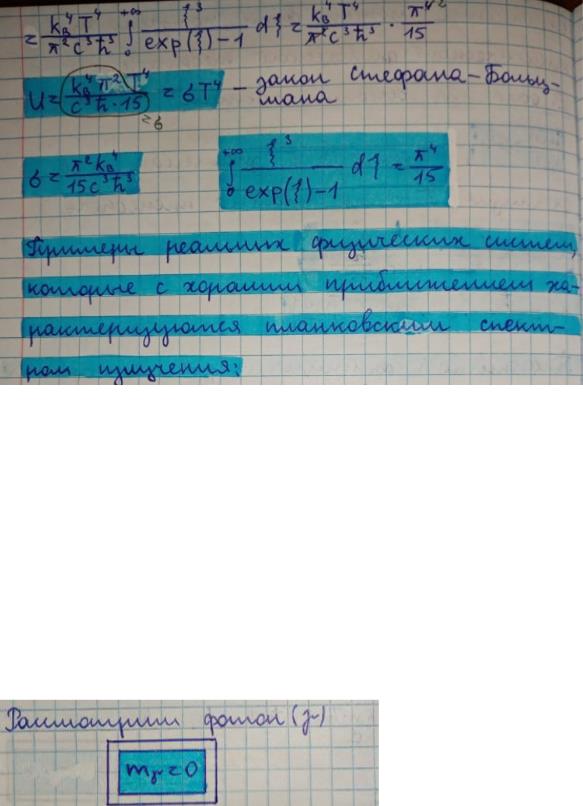 = k_B⁴T⁴/π²c³ħ³ ∫₀^{+∞} ξ³/(exp(ξ)-1) dξ = k_B⁴T⁴/π²c³ħ³ · π⁴²/15
U = k_B⁴π²T⁴/c³ħ·15 = σT⁴ – закон Стефана-Больц-
=σ мана
σ = π²k_B⁴/15c³ħ³ ∫₀^{+∞} ξ³/(exp(ξ)-1) dξ = π⁴/15
Примеры реальных физических систем,
которые с хорошим приближением ха-
рактеризуются планковским спект-
ром излучения:
Рассмотрим фотон (γ)
m_γ = 0